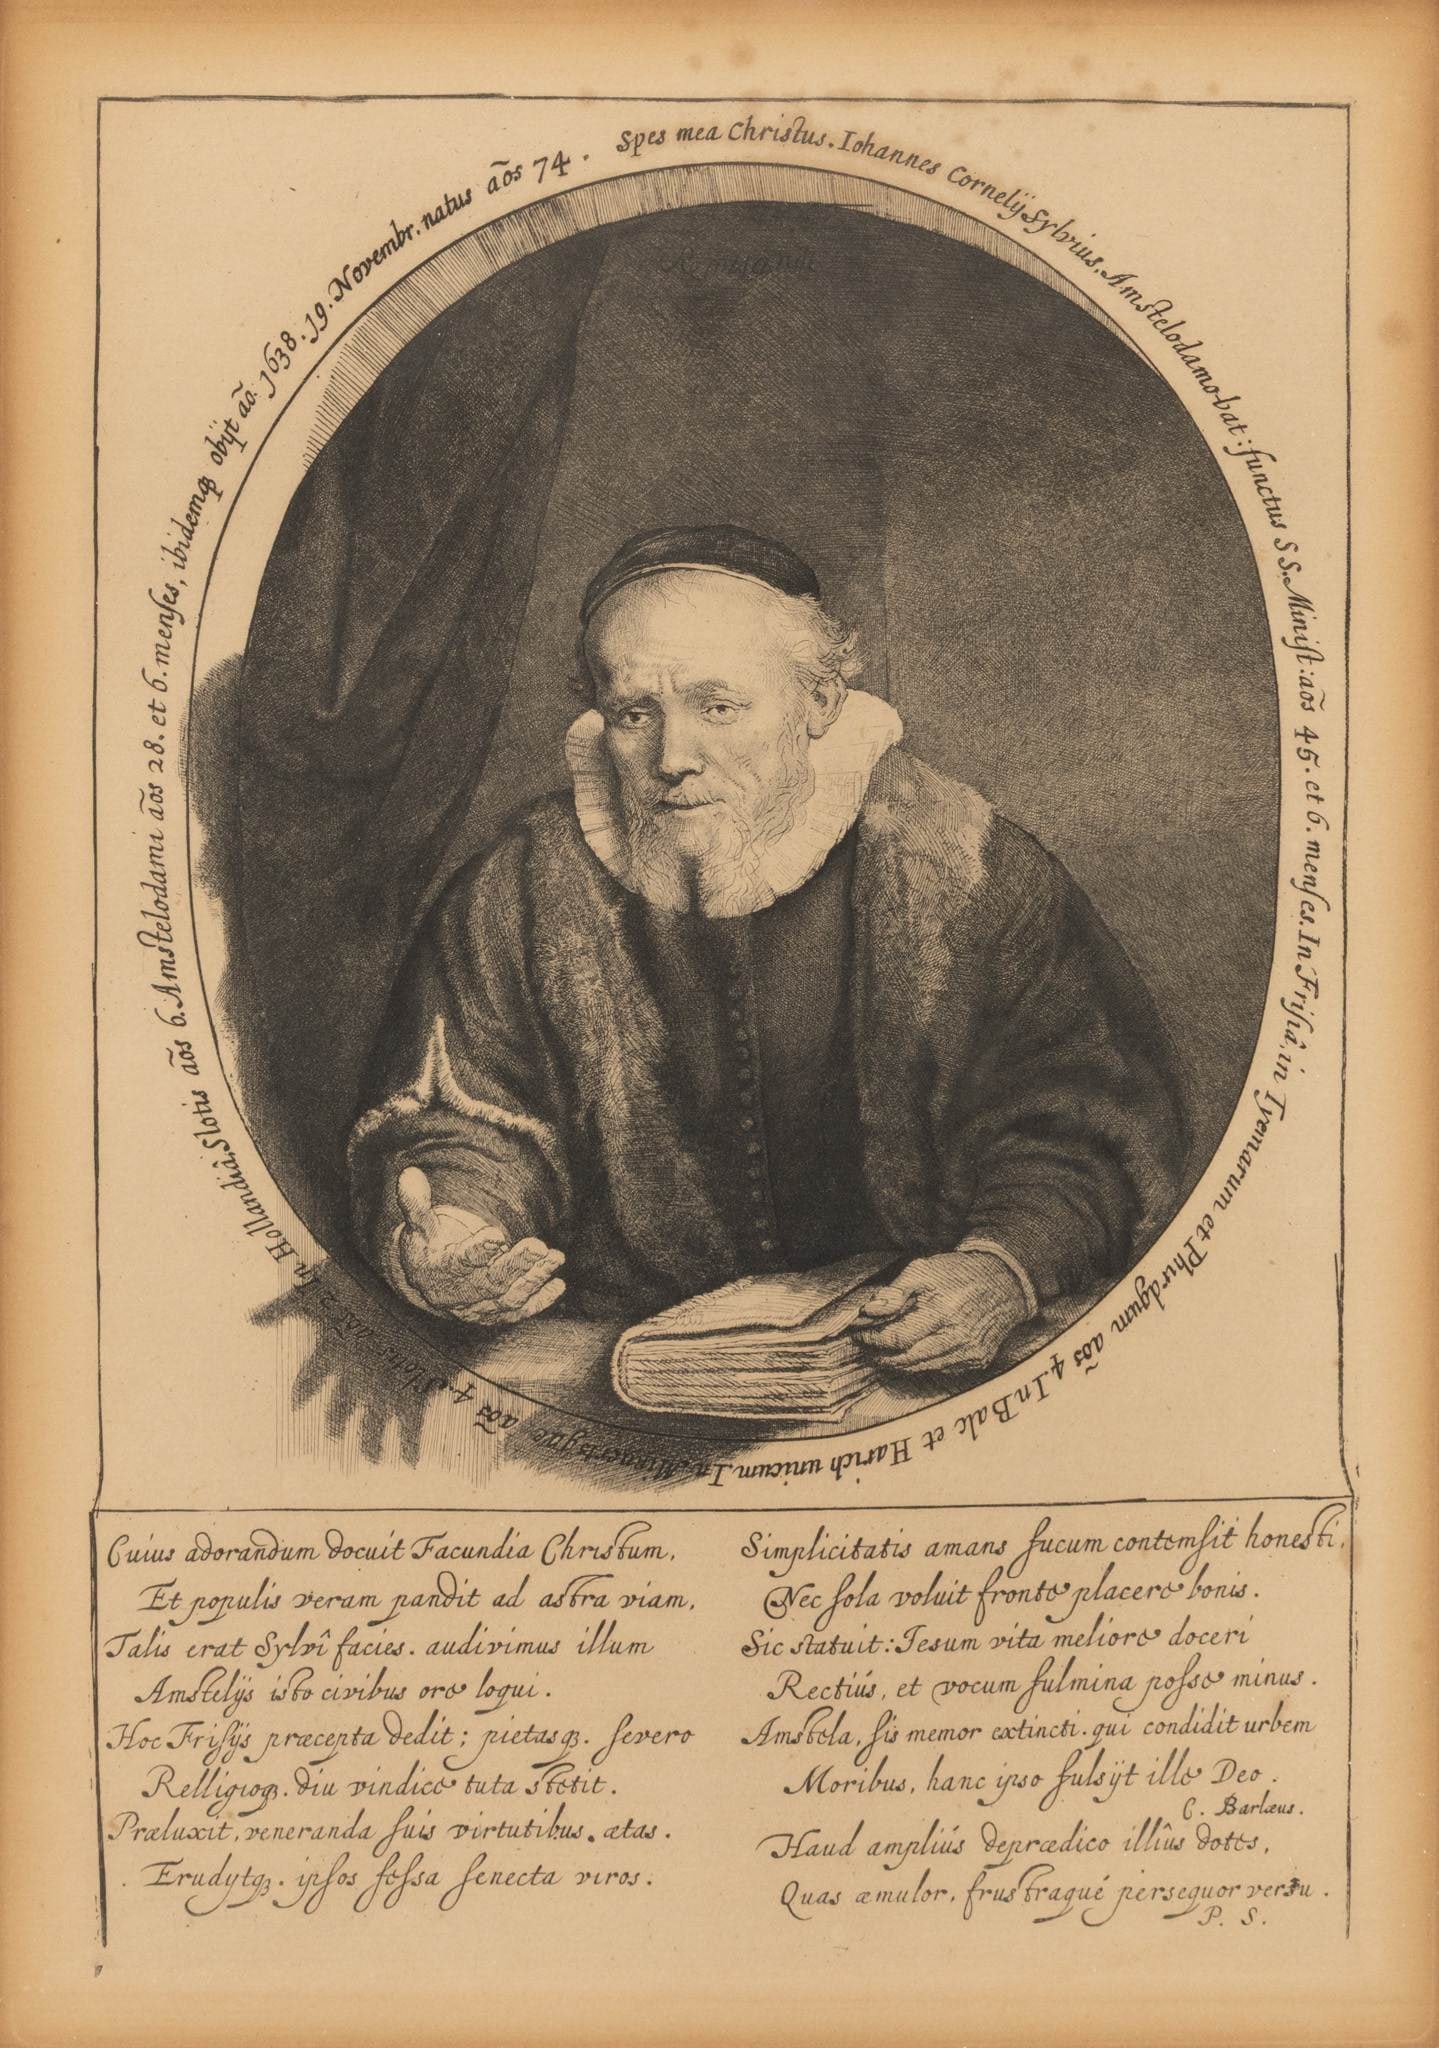 Spes mea Christus. Iohannes Cornelÿ Sylvius, Amstelodamo-bat: functus SS. Minist: aõs 45. et 6. menses. In Frisiâ, in Tyemarum et Phirdgum aõs 4. In Balc et Harich unicum. In Minnertsgae aõs 4. Slotis aõs. 2. In Hollandiâ, Slotis aõs 6. Amstelodami aõs 28. et 6. menses, ibidemq; obÿt aõ. 1638. 19. Novembr. natus aõs 74.
Cuius adorandum docuit Facundia Christum,
Et populis veram pandit ad astra viam,
Talis erat Sylvî facies. audivimus illum
Amstelÿs isto civibus ore loqui.
Hoc Frisÿs præcepta dedit; pietasq;. severo
Relligioq;. diu vindice tuta stetit.
Præluxit, veneranda suis virtutibus. ætas.
Erudytq;. ipsos fessa senecta viros.
Simplicitatis amans fucum contemsit honesti,
Nec sola voluit fronte placere bonis.
Sic statuit: Iesum vita meliore doceri
Rectiús, et vocum fulmina posse minus.
Amstela, sis memor extincti. qui condidit urbem
Moribus, hanc ipso fulsÿt ille Deo.
C. Barlæus.
Haud ampliús deprædico illîus dotes,
Quas æmulor, frustraqué persequor versu.
P. S.